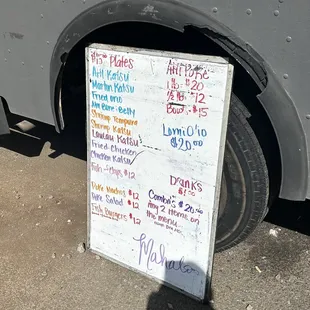 $15 Plates
Ahi Katsu
Marlin Katsu
Fried Ono
Shrimp Tempura
Shrimp Katsu
Katsu
Fried Chicken
Chicken Katsu
$12
Poke Nachos $12
Poke Salad $12
Burgers $12
Ahi Poke
1 lb $20
½ lb $12
Bowl $15
Lomi O'io
$20.00
Drinks
$1.00
Combo's $20.00
Any 2 items on
the menu
Mahalo